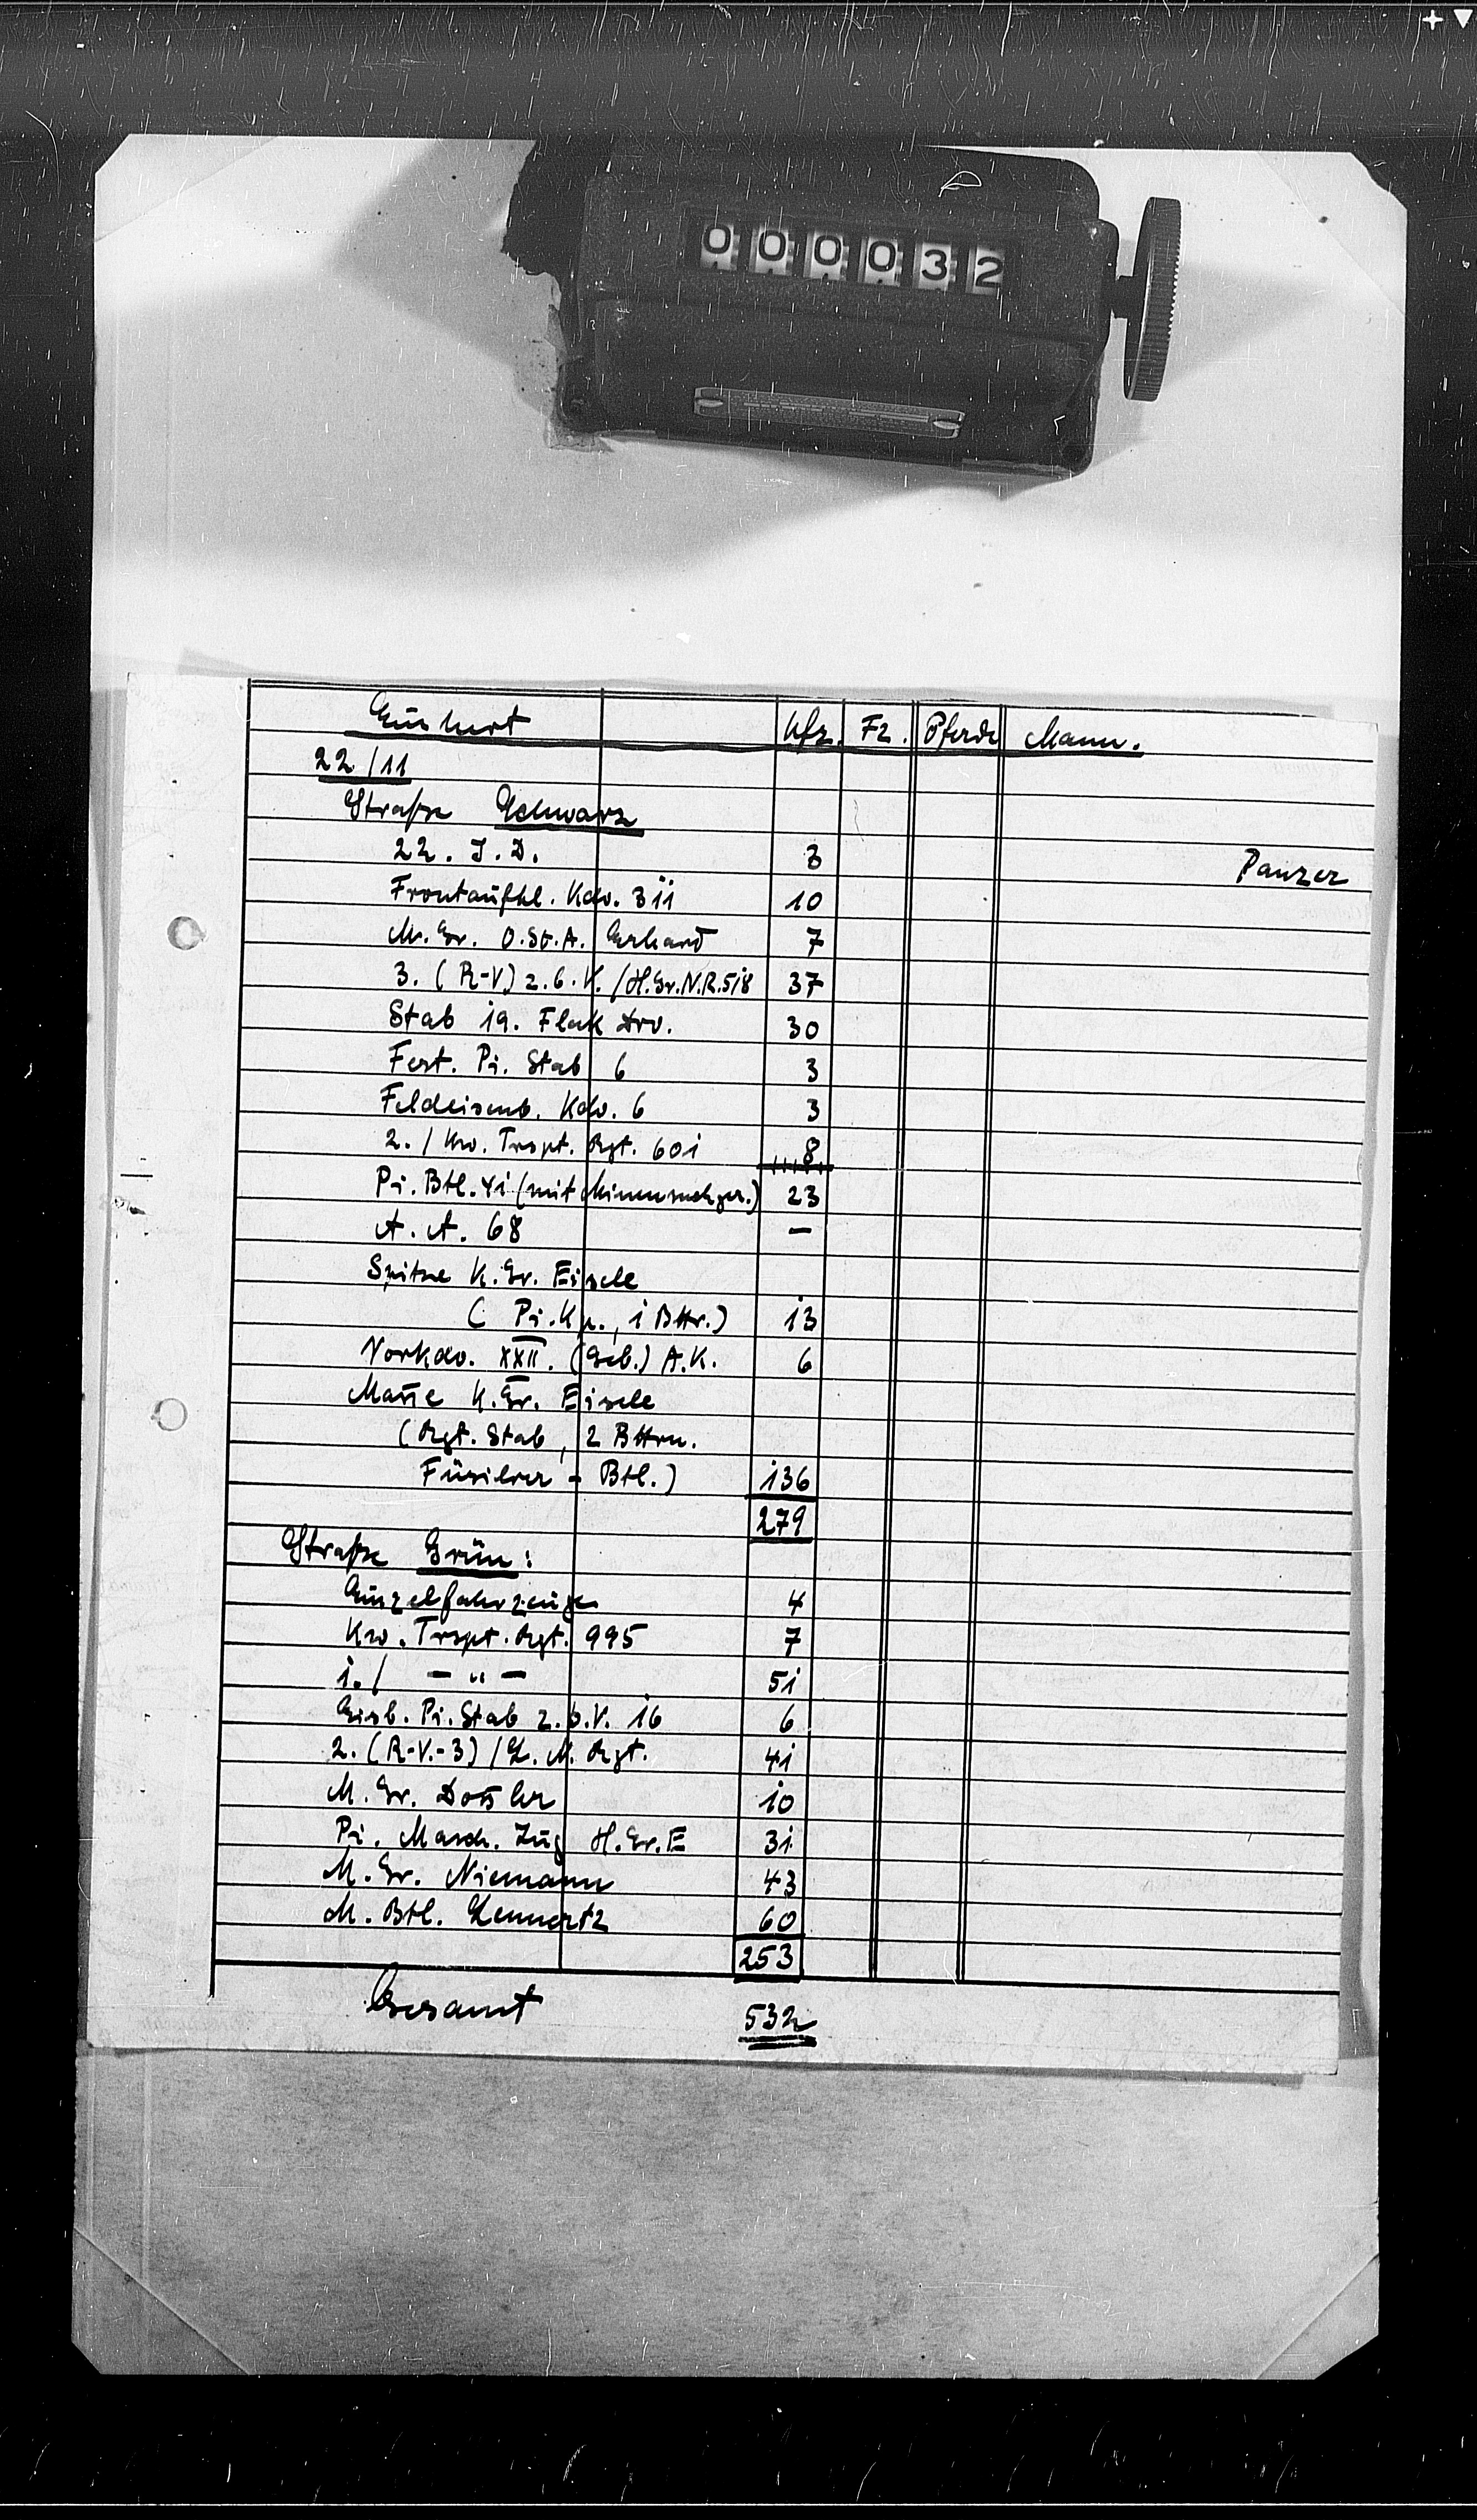 000032
Einheit Kfz. Fz. Pferde Mann.
22/11
Straße Schwarz
22. J.D. 3 Panzer
Frontaufkl. Kdo. 311 10
M.Gr. O.St.A. Erhard 7
3. (R-V) z.b.V. / H.Gr.N.R. 518 37
Stab 19. Flak Div. 30
Fest. Pi. Stab 6 3
Feldeisenb. Kdo. 6 3
2. / Kw. Trspt. Rgt. 601 8
Pi. Btl. 41 (mit Minensuchger.) 23
A.A. 68 —
Spitze K.Gr. Eisele
( Pi.Kp., 1 Bttr.) 13
Vorkdo. XXII. (Geb.) A.K. 6
Maße K.Gr. Eisele
(Rgt. Stab, 2 Bttrn.
Füsilier - Btl.) 136
279
Straße Grün:
Einzelfahrzeuge 4
Kw. Trspt. Rgt. 995 7
1. / — " — 51
Eisb. Pi. Stab z.b.V. 16 6
2. (R-V.-3) / L.N. Rgt. 41
M.Gr. 10
Pi. Masch. Zug H.Gr.E 31
M.Gr. Niemann 43
M. Btl. Lennartz 60
253
Gesamt 532